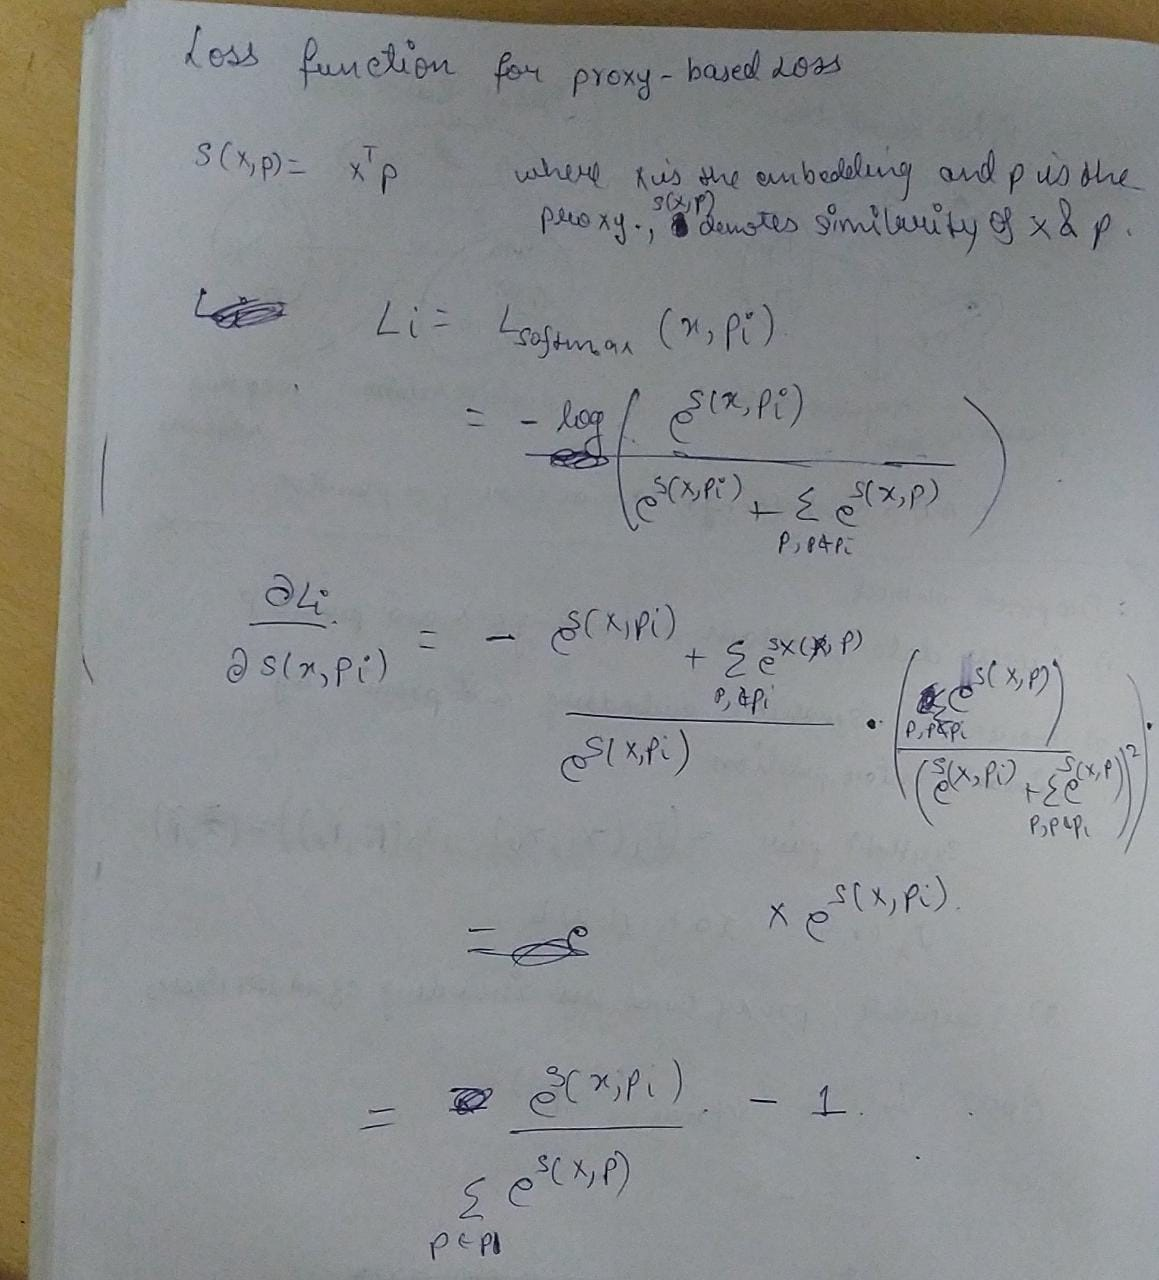 Loss function for proxy-based Loss
S(x,p) = x^T p where x is the embedding and p is the
proxy., s(x,p) denotes similarity of x & p.
Li = Lsoftmax (x, pi)
= - log ( e^{s(x,pi)} / ( e^{s(x,pi)} + Σ_{p, p∉pi} e^{s(x,p)} ) )
∂Li / ∂s(x,pi) = - ( e^{s(x,pi)} + Σ_{p,∉pi} e^{sx(x,p)} ) / e^{s(x,pi)} · ( ( Σ_{p,p∉pi} e^{s(x,p)} ) / ( e^{s(x,pi)} + Σ_{p,p∉pi} e^{s(x,p)} )^2 ) .
x e^{s(x,pi)}.
=
= e^{s(x,pi)} / Σ_{p∈p} e^{s(x,p)} . - 1.